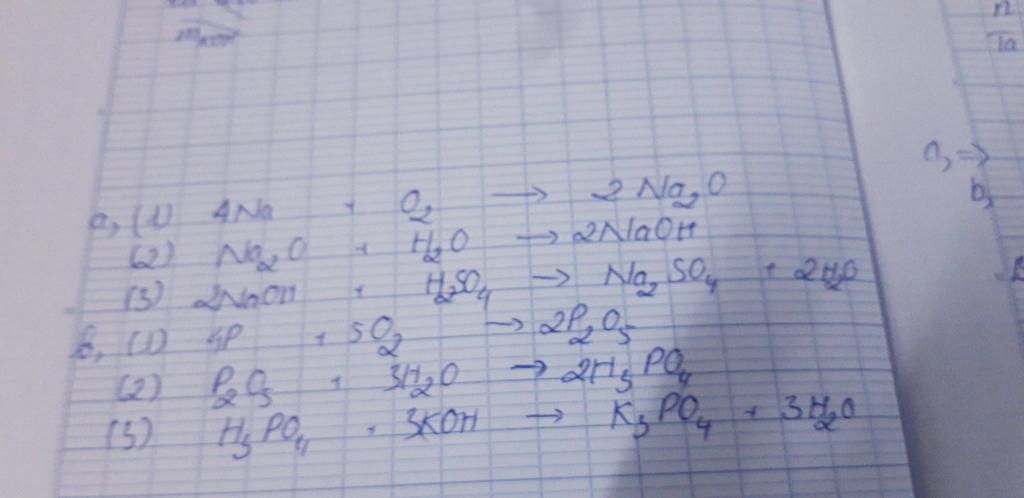 a, (1) 4Na + O₂ → 2Na₂O
(2) Na₂O + H₂O → 2NaOH
(3) 2NaOH + H₂SO₄ → Na₂SO₄ + 2H₂O
b, (1) 4P + 5O₂ → 2P₂O₅
(2) P₂O₅ + 3H₂O → 2H₃PO₄
(3) H₃PO₄ + 3KOH → K₃PO₄ + 3H₂O
a, ⇒
b,